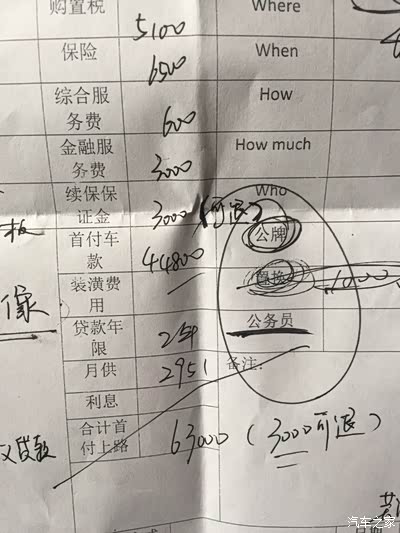 购置税 5100 Where
保险 6500 When
综合服务费 600 How
金融服务费 3000 How much
续保保证金 3000（可退） Who
首付车款 44800 公牌
装潢费用 置换 1000
贷款年限 2年 公务员
月供 2951 备注：
利息
合计首付上路 63000（3000可退）
板
像
贷款
汽车之家